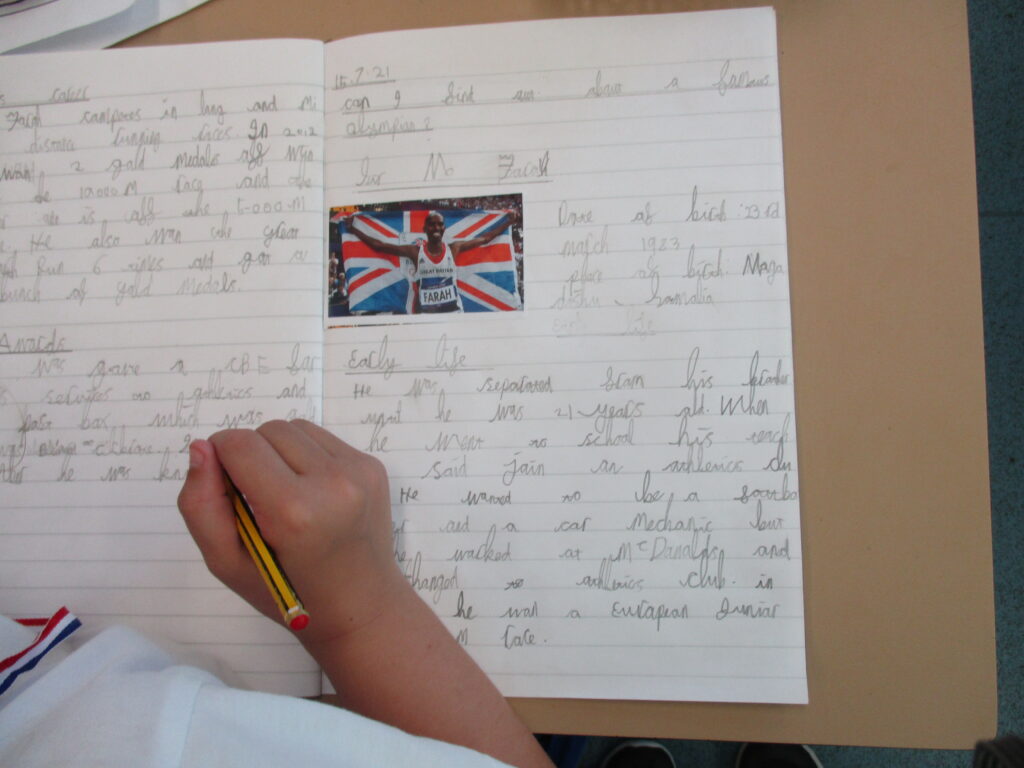 career
Farah competes in long and Mi
distance running races. In 2012
2 gold medals off
the 10,000 M race and the
is off the 5-000 M
He also won the great
Run 6 times and got a
bunch of gold medals.
Awards
was gave a CBE for
services to athletics and
past box, which was
he was
15.7.21
can I find out about a famous
olympian?
Sir Mo Farah
GREAT BRITAIN
FARAH
Date of birth: 23rd
march 1983
place of birth: Moga
dishu, Somalia
Early life
Early life
He was separated from his brother
until he was 21 years old. When
he went to school his teach
said join an athletics clu
He wanted to be a footba
and a car Mechanic but
he worked at McDonalds and
changed to athletics club. in
he won a European Junior
M race.